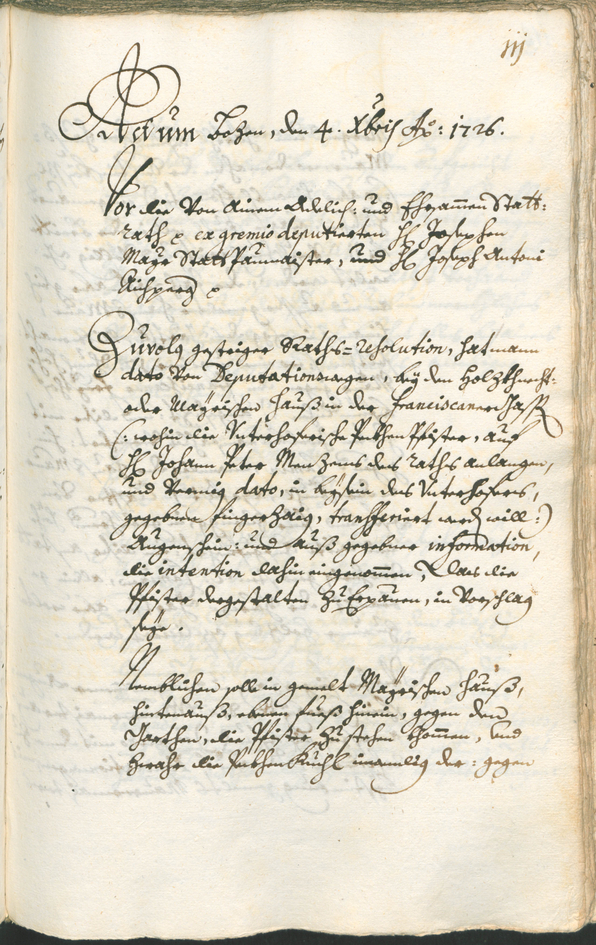 111
Actum Bozen, den 4. Xbris Ao: 1726.
Vor die Von Ainem Adelich: und Ehrsammen Statt:
rath p ex gremio deputierten H: Josephen
Mayr Statt Paumaister, und H: Joseph Antoni
Aichperg p
Zuvolg gestriger Raths=resolution, hat mann
dato Von Deputationswegen, bey den Holzkhnecht:
oder Mayrischen Hauß in der Franciscaner Gass
(: wohin die Unterhoferische Pekhen Pfister, auf
H: Johann Peter Menzens des raths anlangen,
und Vermög dato, in beysein des Unterhofers,
gegebnen fingerzaig, transferiert werd will :)
Augenschein: und auß gegebner information,
die intention dahin eingenommen, das die
Pfister dergestalten zu Erpauen, in Vorschlag
seye.
Nemblichen solle in gemelt Mayrischen Hauß,
hintenauß, ebnen fueß hinein, gegen dem
Garthen, die Pfister zu stehen khommen, und
zwahr die Pekhen Kuchl inwendig der: gegen